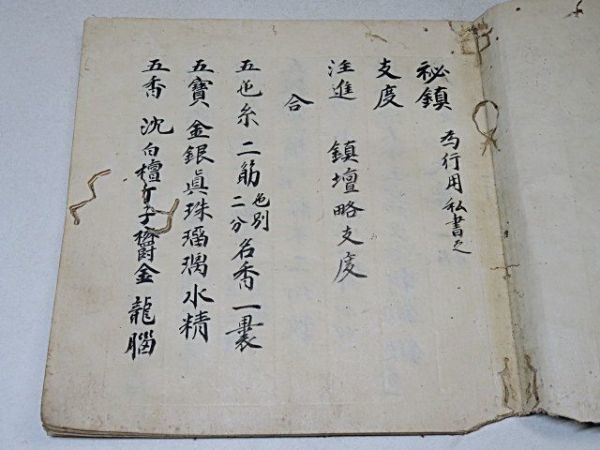 秘鎮 為行用私書之
支度
注進 鎮壇略支度
合
五色糸 二筋 色別二分 名香一裹
五寳 金銀真珠瑠璃水精
五香 沈白檀丁子欝金龍腦